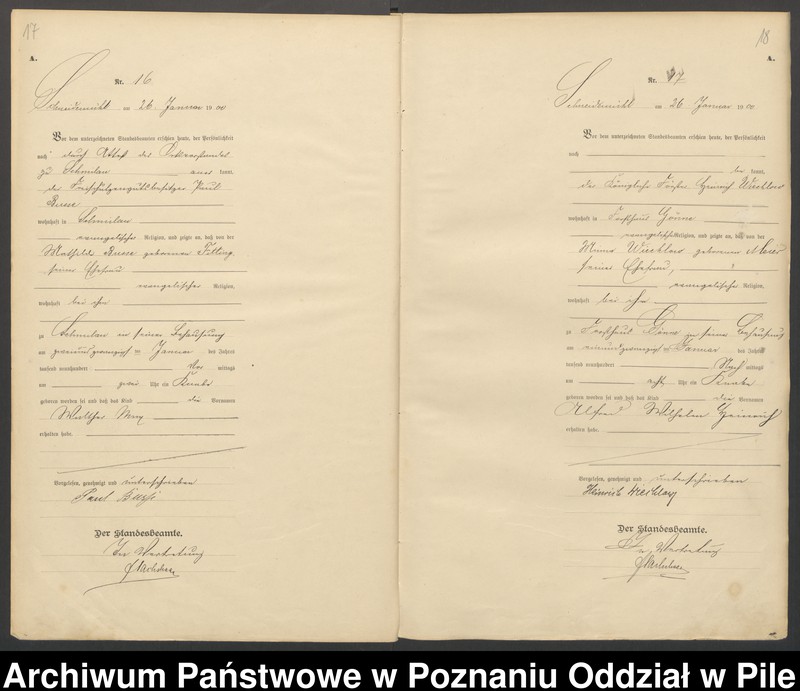 17
A.
Nr. 16
Schneidemühl am 26 Januar 1900
Vor dem unterzeichneten Standesbeamten erschien heute, der Persönlichkeit
nach durch Attest des
zu Schmilau aner kannt,
der Freischulzengutsbesitzer Paul
Busse
wohnhaft in Schmilau
evangelischer Religion, und zeigte an, daß von der
Mathilde Busse geborenen
seiner Ehefrau
evangelischer Religion,
wohnhaft bei ihm
zu Schmilau in seiner Behausung
am zweiundzwanzigsten Januar des Jahres
tausend neunhundert Vor mittags
um zwei Uhr ein Knabe
geboren worden sei und daß das Kind die Vornamen
Walther Max
erhalten habe.
Vorgelesen, genehmigt und unterschrieben
Paul Busse
Der Standesbeamte.
In Vertretung
18
A.
Nr. 17
Schneidemühl am 26 Januar 1900
Vor dem unterzeichneten Standesbeamten erschien heute, der Persönlichkeit
nach
be kannt,
der Königliche Förster Heinrich
wohnhaft in Forsthaus Gönne
evangelischer Religion, und zeigte an, daß von der
geborenen Meier
seiner Ehefrau,
evangelischer Religion,
wohnhaft bei ihm
zu Forsthaus Gönne in seiner Behausung
am einundzwanzigsten Januar des Jahres
tausend neunhundert Nach mittags
um acht Uhr ein Knabe
geboren worden sei und daß das Kind die Vornamen
Alfred Wilhelm Heinrich
erhalten habe.
Vorgelesen, genehmigt und unterschrieben
Heinrich
Der Standesbeamte.
In Vertretung
Archiwum Państwowe w Poznaniu Oddział w Pile